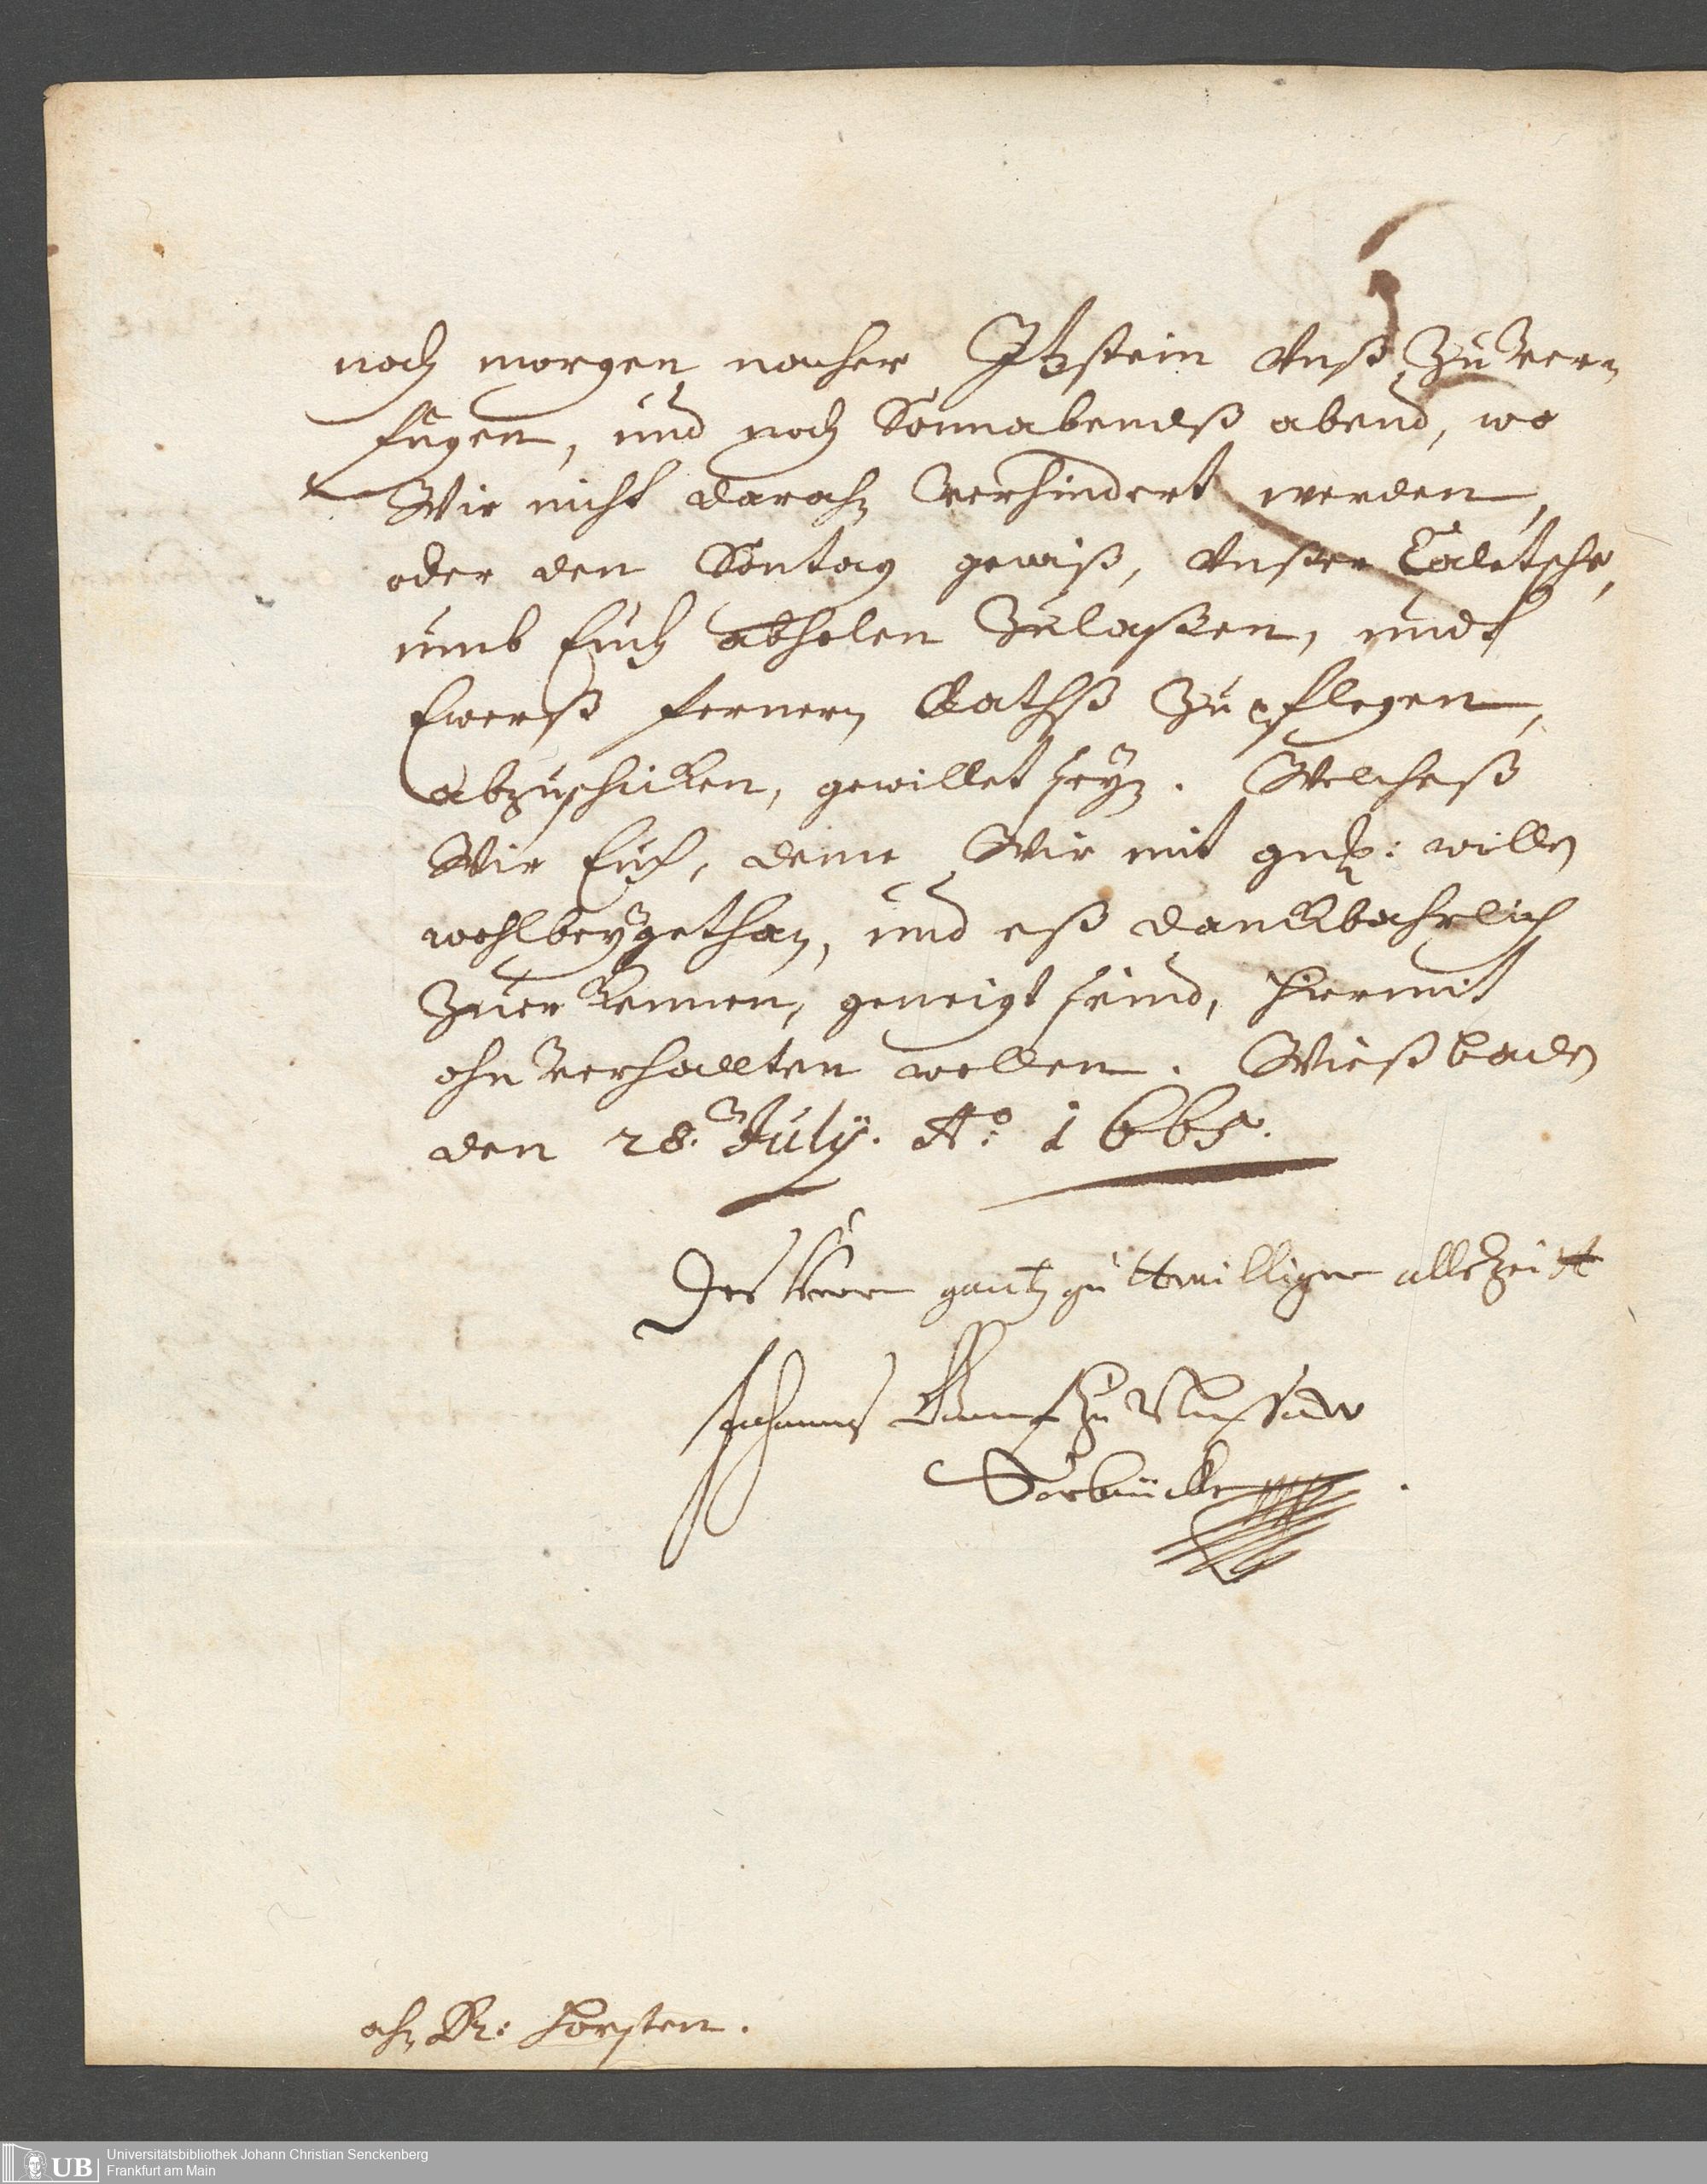 noch morgen nacher Itzstein Vnß zu ver-
fügen, und noch Sonnabendß abend, wo
Wir nicht darahn verhindert werden,
oder den Sontag gewiß, Vnßere Caletsche,
umb Euch abholen zulaßen, undt
Ewerß fernern Rathß zu pflegen,
abzuschicken, gewillet seyn. Welcheß
Wir Euch, deme Wir mit gn: willen
wohlbeygethan, und eß danckbahrlich
zuerkennen, geneigt seind, hiermit
ohnverhallten wollen. Wießbaden
den 28. July. Ao: 1665.
Des Herrn gantz guttwilliger allezeitt
Johannes Graf zu Nassaw
Sarbrücken
ahn Dr: Horsten.
UB Universitätsbibliothek Johann Christian Senckenberg
Frankfurt am Main